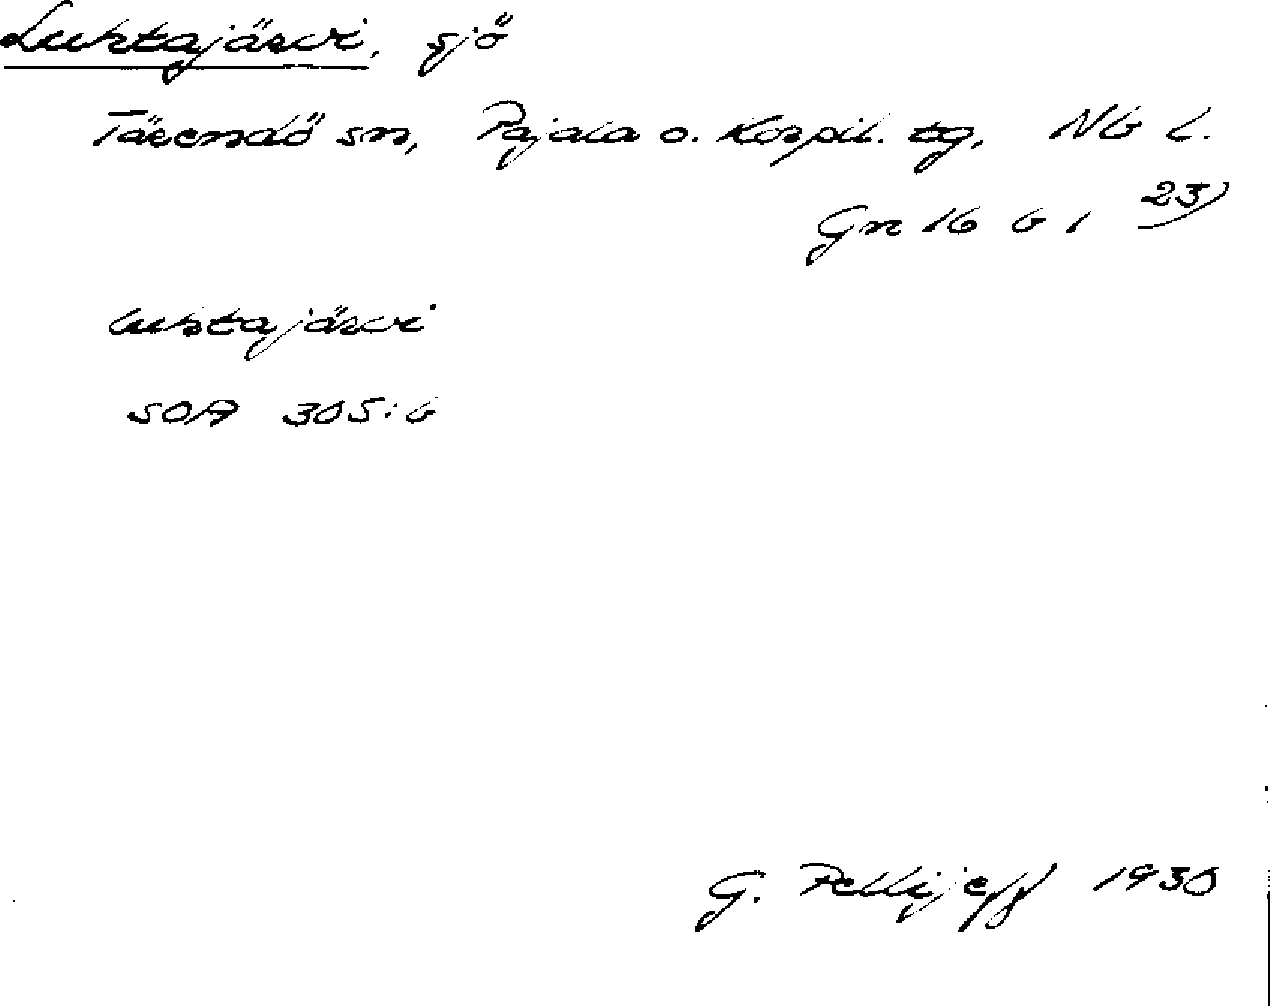 Luhtajärvi, sjö
Tärendö sn, Pajala o. Korpil. tg, Nb l.
Gn 16 b 1 23)
luhtajärvi
SOA 305:6
G. Pellijeff 1930